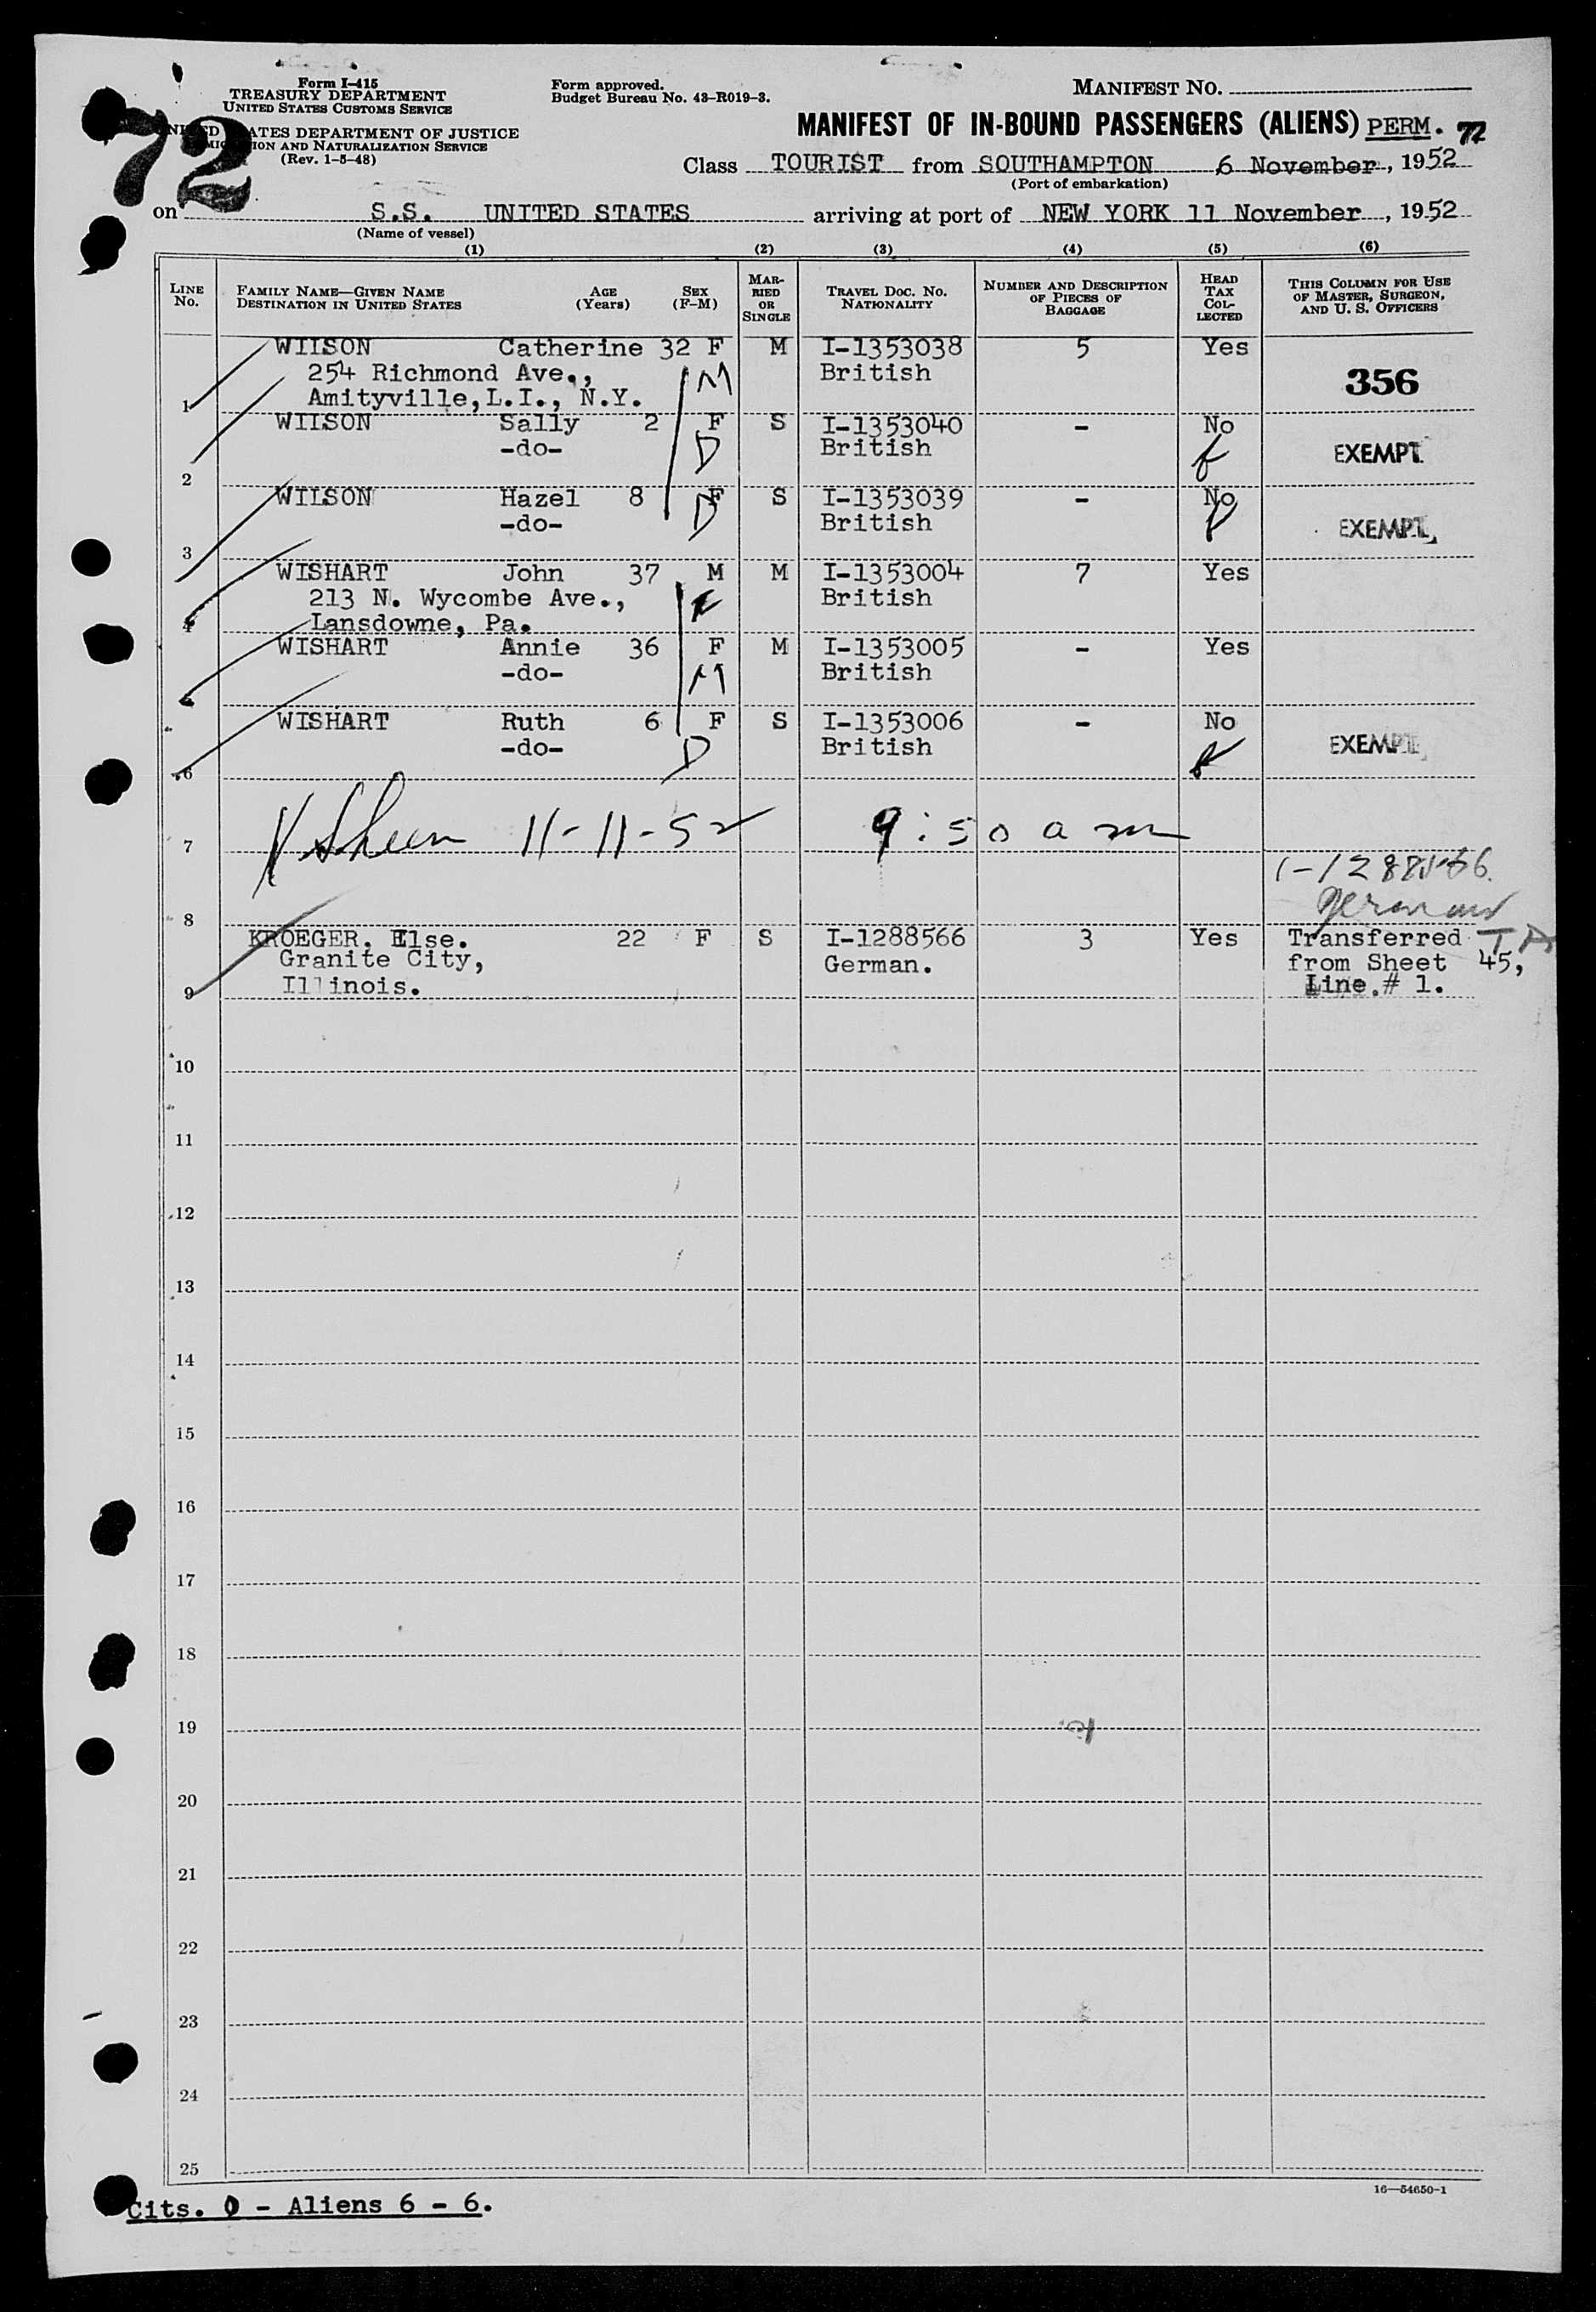 Form I-415
TREASURY DEPARTMENT
UNITED STATES CUSTOMS SERVICE
ATES DEPARTMENT OF JUSTICE
ION AND NATURALIZATION SERVICE
(Rev. 1-5-48)
72
Form approved.
Budget Bureau No. 43-R019-3.
MANIFEST NO.
MANIFEST OF IN-BOUND PASSENGERS (ALIENS) PERM. 72
Class TOURIST from SOUTHAMPTON 6 November, 1952
(Port of embarkation)
on S.S. UNITED STATES arriving at port of NEW YORK 11 November, 1952
(Name of vessel)
(1) (2) (3) (4) (5) (6)
LINE No.
FAMILY NAME—GIVEN NAME
DESTINATION IN UNITED STATES
AGE (Years)
SEX (F-M)
MARRIED OR SINGLE
TRAVEL DOC. NO. NATIONALITY
NUMBER AND DESCRIPTION OF PIECES OF BAGGAGE
HEAD TAX COLLECTED
THIS COLUMN FOR USE OF MASTER, SURGEON, AND U. S. OFFICERS
WIISON Catherine 32 F M I-1353038 5 Yes
254 Richmond Ave., M British 356
1 Amityville, L.I., N.Y.
WIISON Sally 2 F S I-1353040 - No
-do- D British EXEMPT
2
WILSON Hazel 8 F S I-1353039 - No
-do- D British EXEMPT
3
WISHART John 37 M M I-1353004 7 Yes
213 N. Wycombe Ave., British
4 Lansdowne, Pa.
WISHART Annie 36 F M I-1353005 - Yes
-do- M British
WISHART Ruth 6 F S I-1353006 - No
-do- D British EXEMPT
6
11-11-52 9:50 am
7
8
KROEGER, Else. 22 F S I-1288566 3 Yes Transferred
Granite City, German. from Sheet 45,
9 Illinois. Line # 1.
10
11
12
13
14
15
16
17
18
19
20
21
22
23
24
25
16—54650-1
Cits. 0 - Aliens 6 - 6.